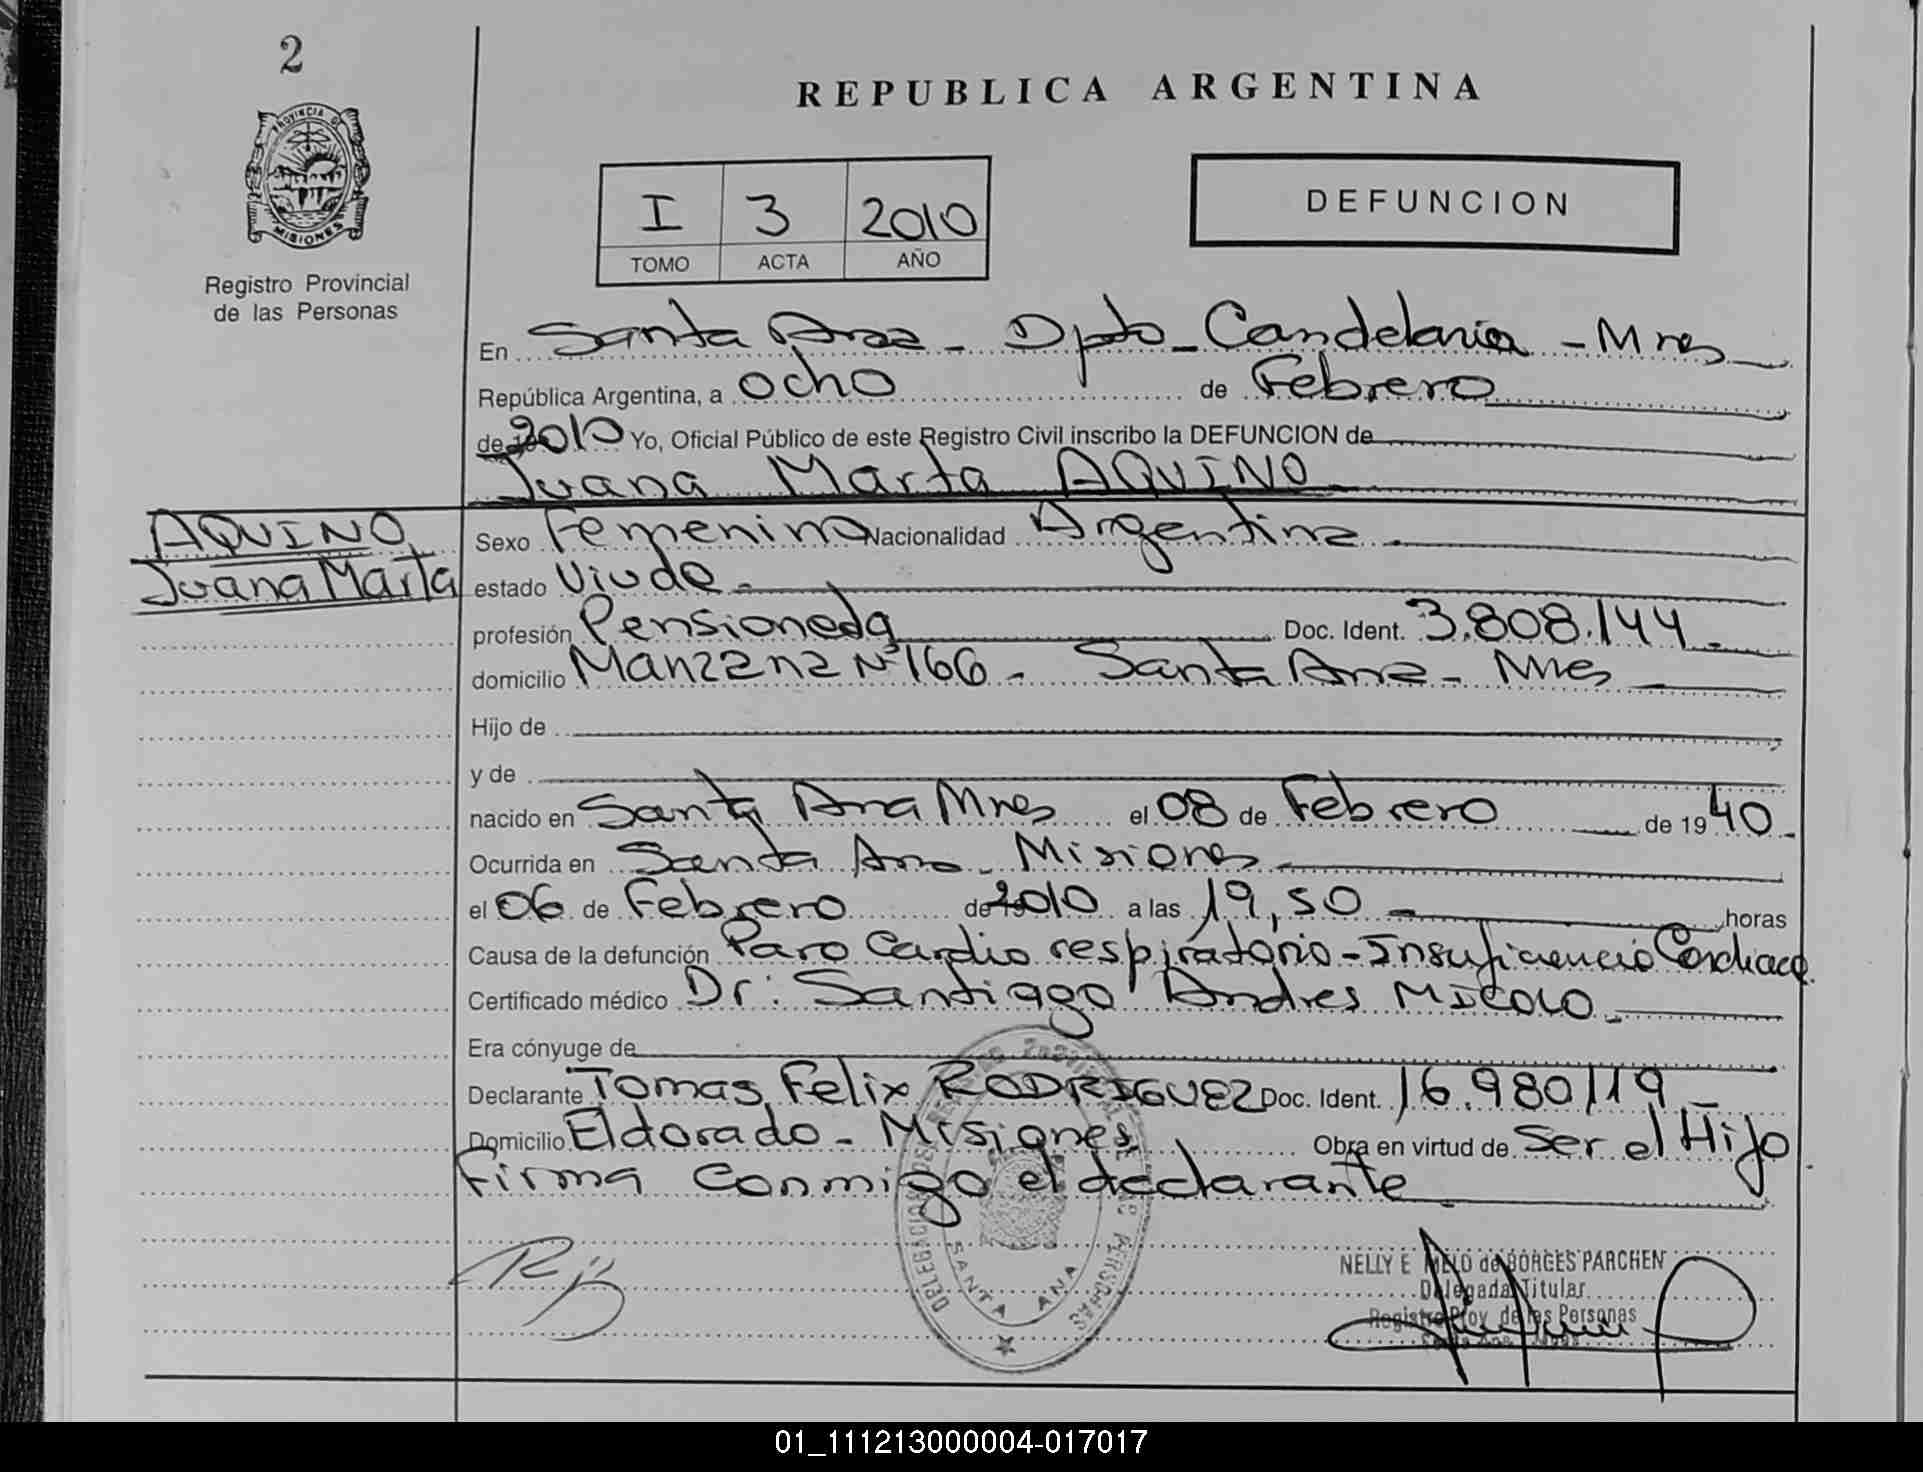 2
REPUBLICA ARGENTINA
PROVINCIA DE
MISIONES
Registro Provincial
de las Personas
I 3 2010
TOMO ACTA AÑO
DEFUNCION
En Santa Ana - Dpto - Candelaria - Mnes
República Argentina, a ocho de Febrero
de 2010 Yo, Oficial Público de este Registro Civil inscribo la DEFUNCION de
Juana Marta AQUINO
AQUINO
Juana Marta
Sexo Femenino Nacionalidad Argentina
estado Viuda
profesión Pensionada Doc. Ident. 3.808.144
domicilio Manzana Nº 166 - Santa Ana - Mnes
Hijo de
y de
nacido en Santa Ana Mnes el 08 de Febrero de 1940
Ocurrida en Santa Ana - Misiones
el 06 de Febrero de 2010 a las 19,50 horas
Causa de la defunción Paro Cardio respiratorio - Insuficiencia Cardiaca
Certificado médico Dr: Santiago Andres MICOLO
Era cónyuge de
Declarante Tomas Felix RODRIGUEZ Doc. Ident. 16.980119
Domicilio Eldorado - Misiones Obra en virtud de ser el Hijo
Firma conmigo el declarante
SANTA ANA
NELLY E MELO de BORGES PARCHEN
Delegada Titular
Registro Prov. de las Personas
01_111213000004-017017